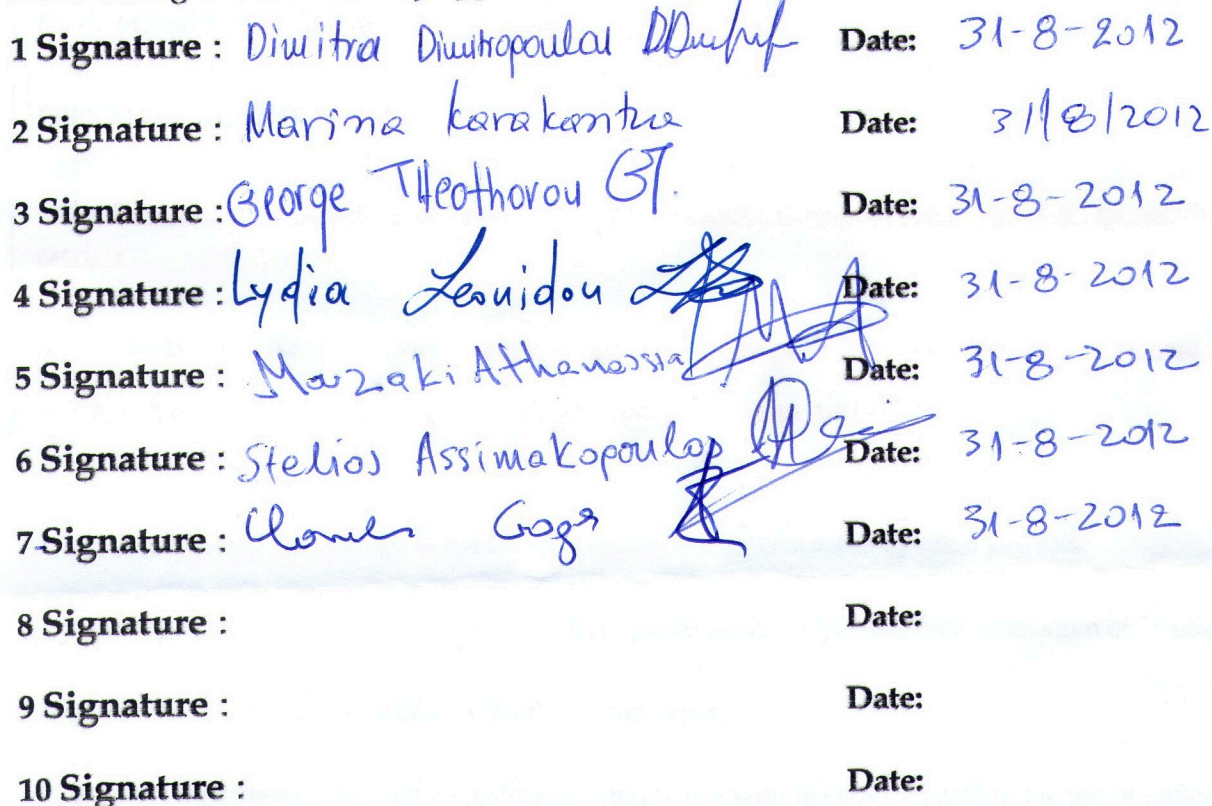 1 Signature : Dimitra Dimitropoulou Date: 31-8-2012
2 Signature : Marina Karakantza Date: 31/8/2012
3 Signature : George THeothorou GT. Date: 31-8-2012
4 Signature : Lydia Leonidou Date: 31-8-2012
5 Signature : Marzaki Athanassia MA Date: 31-8-2012
6 Signature : Stelios Assimakopoulos Date: 31-8-2012
7 Signature : Date: 31-8-2012
8 Signature : Date:
9 Signature : Date:
10 Signature : Date: